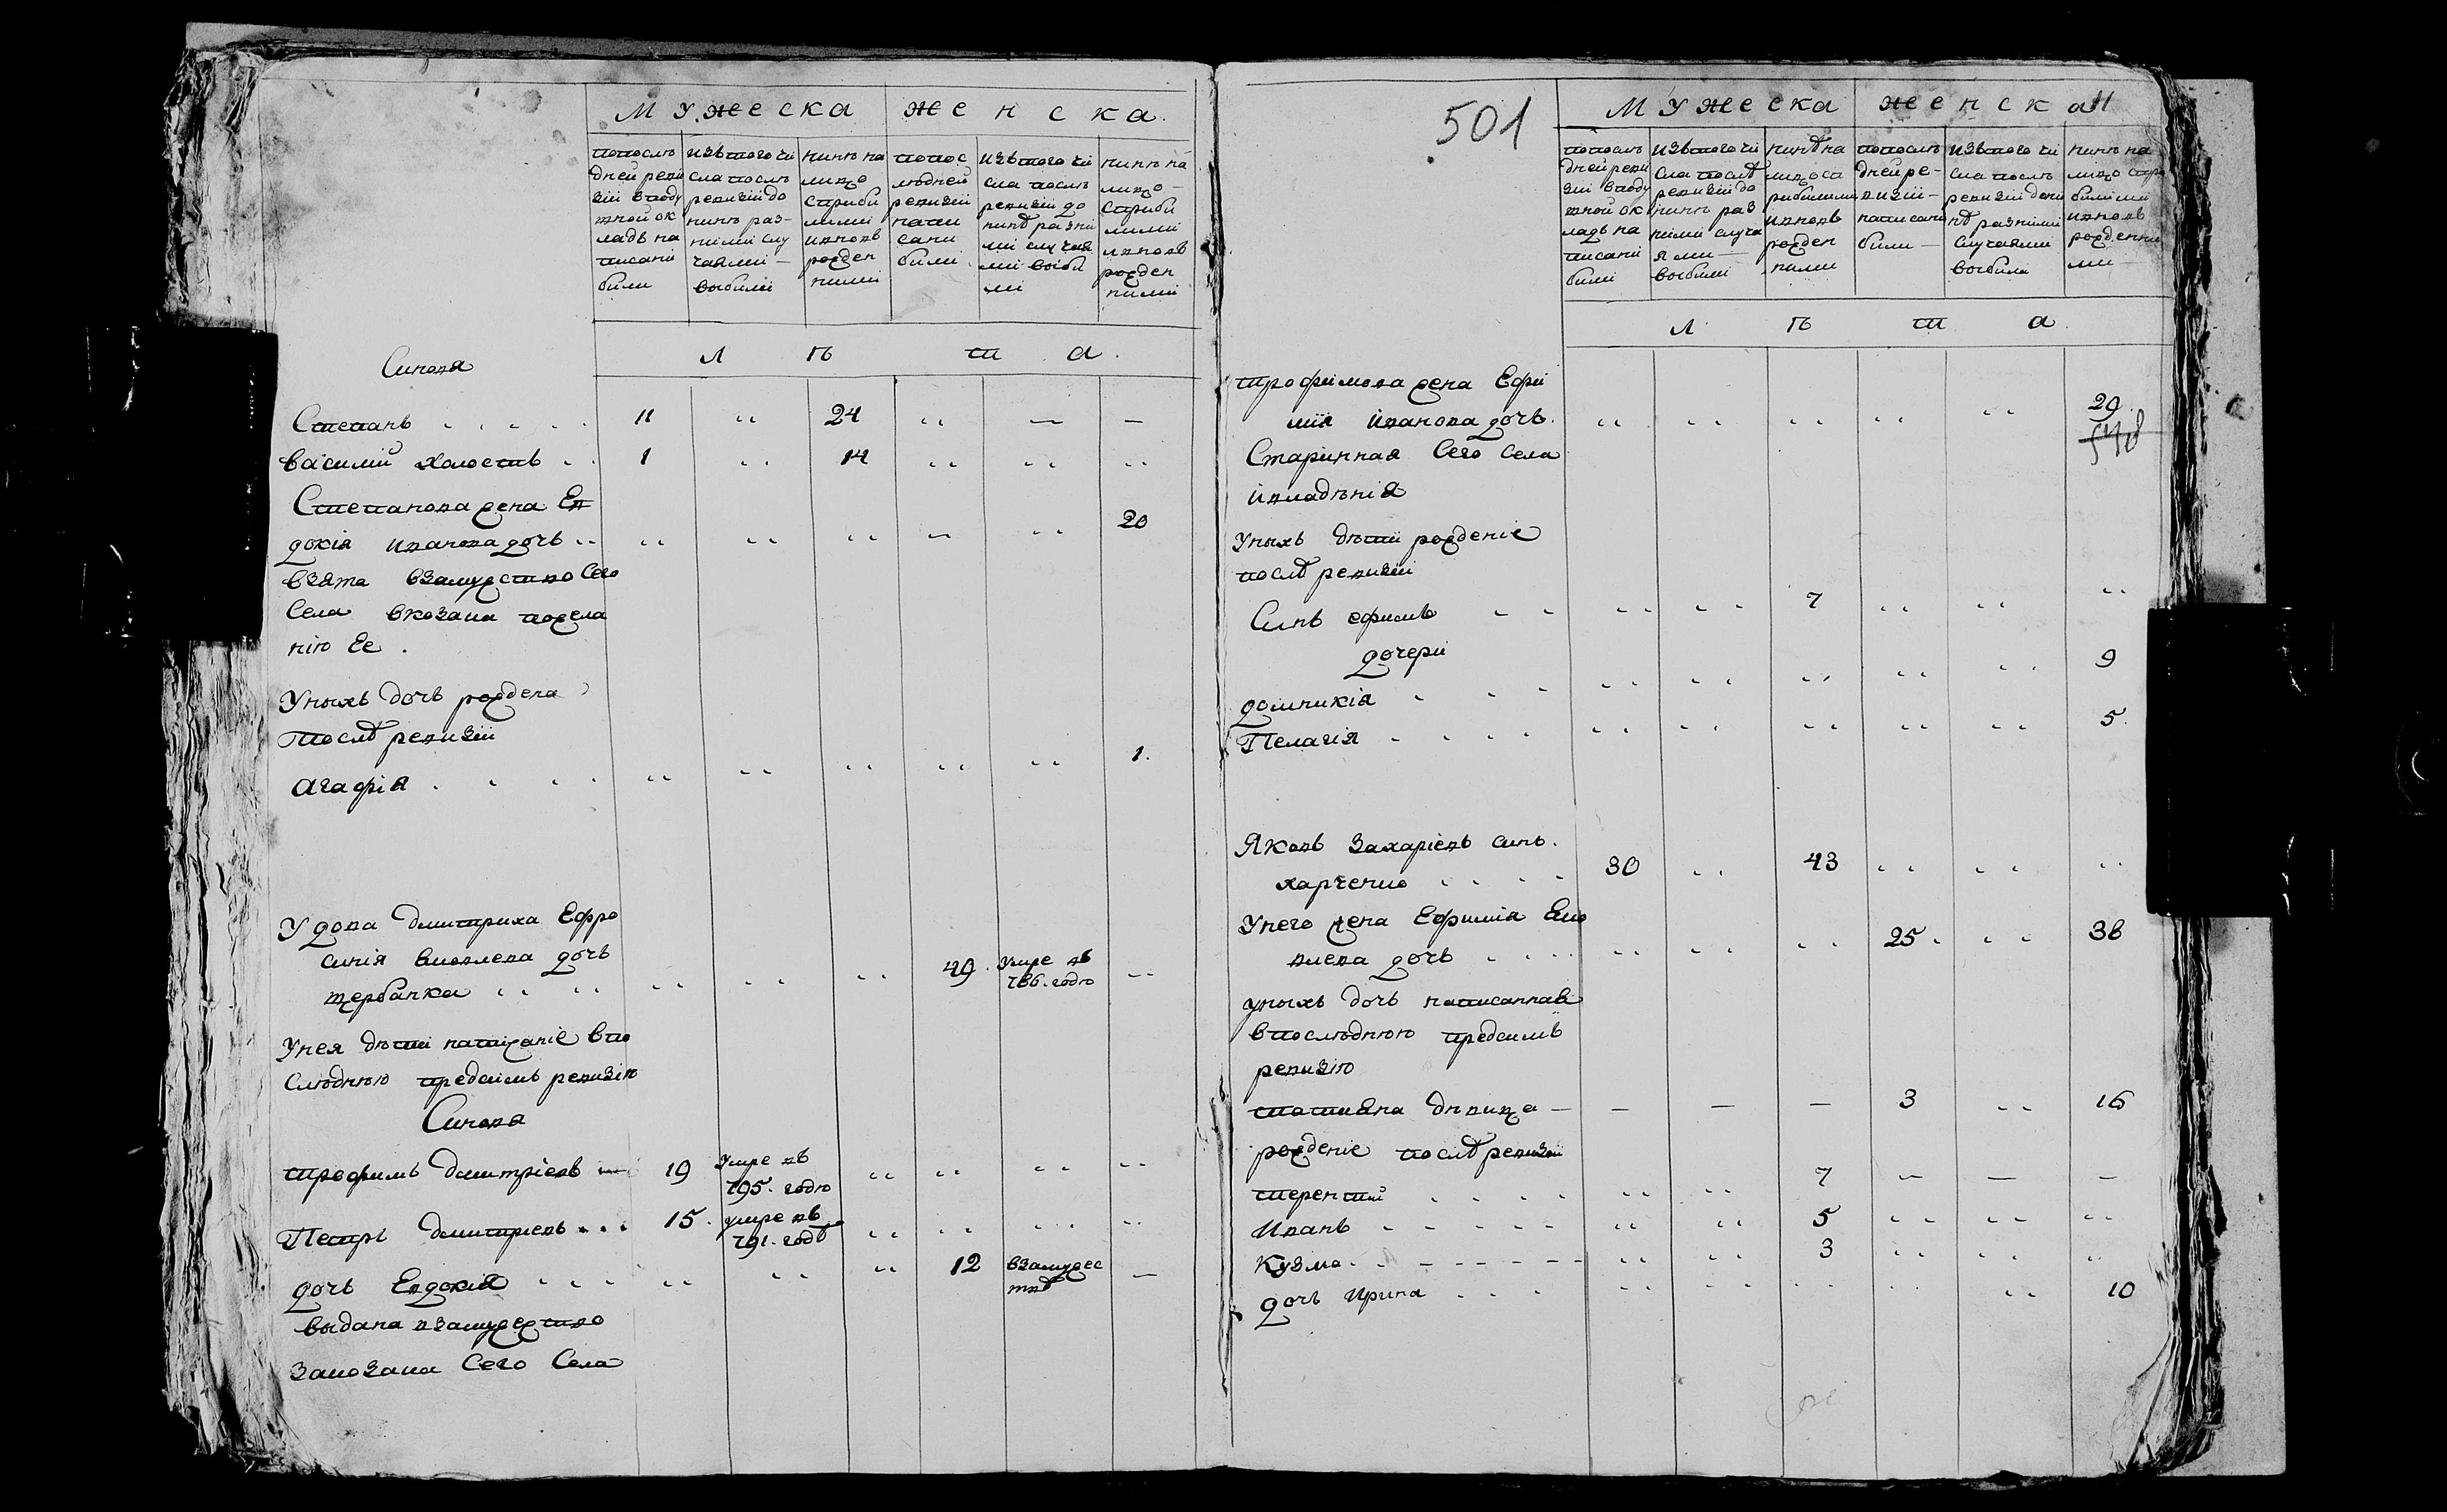 Мужеска женска.
попослѣ
дней реви
зіи вподу
шной ок
ладъ на
писани
били
изътого чи
сла послѣ
ревизіи до
нинѣ раз-
ними слу
чаями -
выбили
нинѣ на
лицо
сприби
лими
иновь
рожден
ними
попос
лѣдней
ревизіи
напи
сани
били
изътого чи
сла послѣ
ревизіи до
нинѣ разни
ми случая
ми выби
ли
нинѣ на
лицо -
сприби
лими
иновь
рожден
ними
лѣта.
Синовя
Степанъ 11 " 24 " — —
василій холостъ 1 " 14 " " "
Степанова жена Ев
докія иванова дочь " " " " — " 20
взята взамужство Сего
Села вказаци пожела
нію Ее .
Унихъ дочь рождена
Послѣ ревизіи
агафія " " " " " 1.
Удова дмитриха Ефро
синія виовлева дочь
щербанка " " " 49. умре въ 786. годо "
Унея дѣти написаніе впо
слѣднюю предсимъ ревизію
Синовя
трофимъ дмитріевъ — 19 Умре въ 795. годо " " " "
Петръ дмитріевъ 15. умре въ 791. годѣ " " " "
дочь Евдокія " " " 12 взамужес твѣ —
выдана взамужество
Сего Села
501
Мужеска женска
11
попослѣ
дней реви
зіи вподу
шной ок
ладъ на
писани
били
изътого чи
сла послѣ
ревизіи до
нинѣ раз
ними случа
ями —
выбили
нинѣ на
лицо сп
рибилими
иновь
рожден
ними
попослѣ
дней ре-
визіи —
написани
били —
изътого чи
сла послѣ
ревизіи дони
нѣ разними
случаями
выбили
нинѣ на
лицо спри
билими
иновь
рожденни
ми —
лѣта.
трофимова жена Ефи
мія иванова дочь. " " " " " 29.
Старинная Сего Села
ивладѣнія
Унихъ дѣти рожденіе
послѣ ревизіи
Синъ ефимъ " " 7 " " "
дочери
домникія " " " " " 9
Пелагія " " " " " 5.
Яковъ Захаріевъ синъ.
харченко 30 " 43 " " "
Унего жена Ефимія
влева дочь " " " 25. " 38
унихъ дочь написанная
впослѣднюю предсимъ
ревизію
татияна дѣвица — — — — 3 " 16
рожденіе послѣ ревизіи
терентій " " 7 — — —
Иванъ " " 5 " " "
Кузма " " 3 " " "
дочь Ирина " " " " " 10